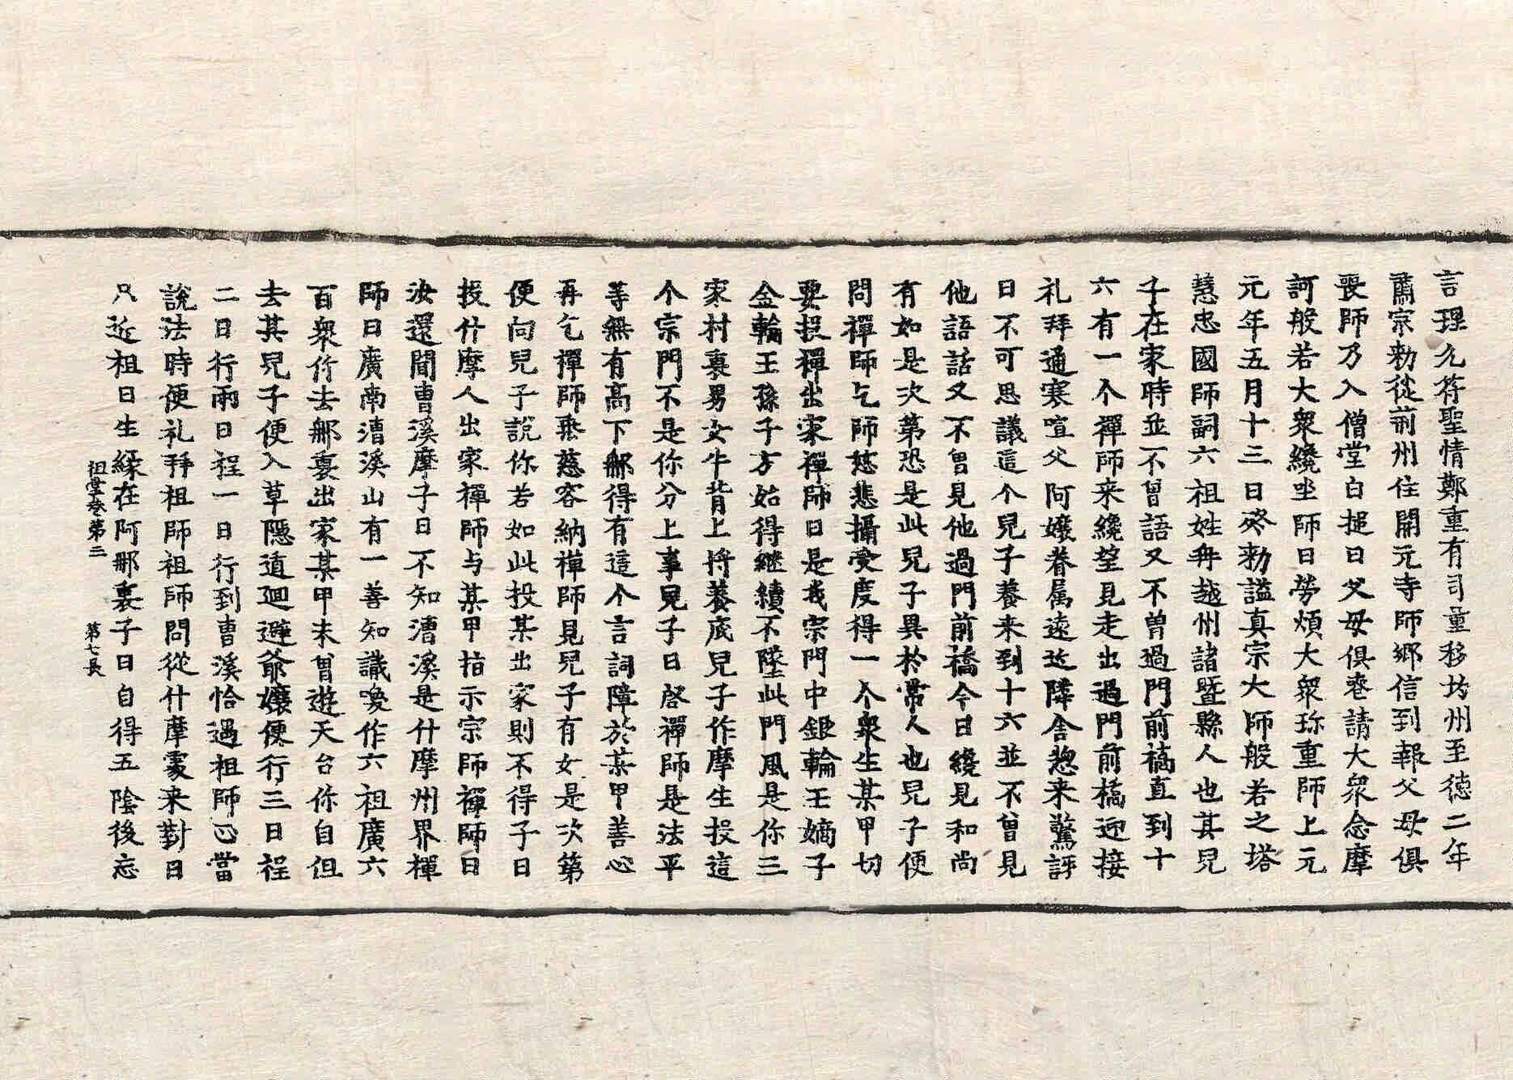 言理允符聖情鄭重有司量移坊州至德二年
肅宗勑從前州住開元寺師鄉信到報父母俱
喪師乃入僧堂白搥曰父母俱喪請大衆念摩
訶般若大衆纔坐師曰勞煩大衆珎重師上元
元年五月十三日終勑謚真宗大師般若之塔
慧忠國師嗣六祖姓冉越州諸暨縣人也其兒
子在家時並不曾語又不曾過門前橋直到十
六有一个禪師来纔望見走出過門前橋迎接
礼拜通寒喧父阿孃眷属遠近隣舎惣来驚訝
曰不可思議這个兒子養来到十六並不曾見
他語話又不曾見他過門前橋今日纔見和尚
有如是次第恐是此兒子異於常人也兒子便
問禪師乞師慈悲攝受度得一个衆生某甲切
要投禪出家禪師曰是我宗門中銀輪王嫡子
金輪王孫子方始得継續不墜此門風是你三
家村裏男女牛背上将養底兒子作摩生投這
个宗門不是你分上事兒子曰啓禪師是法平
等無有高下那得有這个言詞障於某甲善心
再乞禪師垂慈容納禪師見兒子有如是次第
便向兒子說你若如此投某出家則不得子曰
投什摩人出家禪師与某甲指示宗師禪師曰
汝還聞曹溪摩子曰不知漕溪是什摩州界禪
師曰廣南漕溪山有一善知識喚作六祖廣六
百衆你去那裏出家某甲未曾遊天台你自但
去其兒子便入草隱遁迴避爺孃便行三日程
二日行兩日程一日行到曹溪恰遇祖師正當
說法時便礼拜祖師祖師問從什摩處来對曰
只近祖曰生緣在阿那裏子曰自得五陰後忘
祖堂卷第三　第七丈